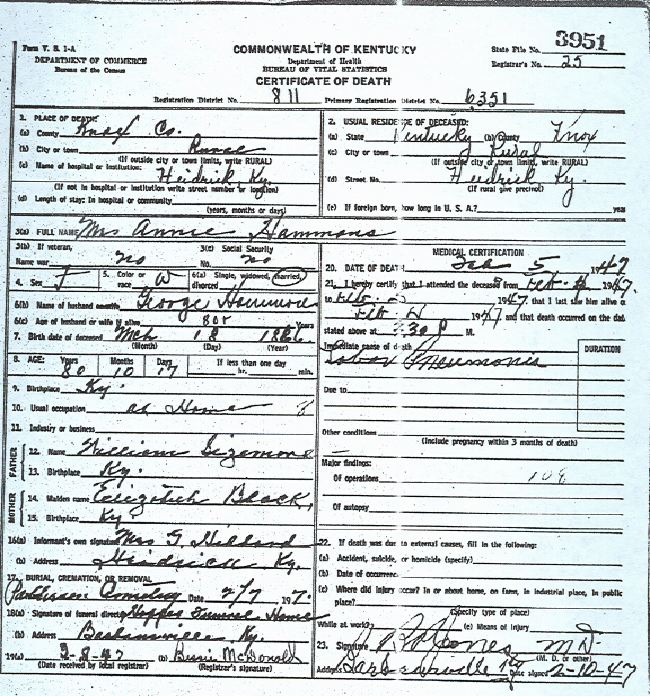 Form V. S. 1-A
DEPARTMENT OF COMMERCE
Bureau of the Census
COMMONWEALTH OF KENTUCKY
Department of Health
BUREAU OF VITAL STATISTICS
CERTIFICATE OF DEATH
State File No. 3951
Registrar's No. 25
Registration District No. 811 Primary Registration District No. 6351
1. PLACE OF DEATH:
(a) County Knox Co.
(b) City or town Rural
(If outside city or town limits, write RURAL)
(c) Name of hospital or institution:
Heidrick Ky.
(If not in hospital or institution write street number or location)
(d) Length of stay: In hospital or community
(years, months or days)
2. USUAL RESIDENCE OF DECEASED:
(a) State Kentucky (b) County Knox
(c) City or town Rural
(If outside city or town limits, write RURAL)
(d) Street No. Heidrick Ky.
(If rural give precinct)
(e) If foreign born, how long in U. S. A.? year
3(a) FULL NAME Mrs Annie Hammons
3(b) If veteran,
Name war no
3(c) Social Security
No. no
4. Sex F
5. Color or race W
6(a) Single, widowed, married,
divorced
6(b) Name of husband or wife George Hammons
6(c) Age of husband or wife if alive 80 Years
7. Birth date of deceased Mch 18
(Month) (Day) (Year)
8. AGE: Years Months Days If less than one day
80 10 17 hr. min.
9. Birthplace Ky.
10. Usual occupation at Home
11. Industry or business
FATHER
12. Name William Sizemore
13. Birthplace Ky.
MOTHER
14. Maiden name Elizabeth Black
15. Birthplace Ky
16(a) Informant's own signature Mrs G
(b) Address Heidrick Ky.
17. BURIAL, CREMATION, OR REMOVAL
Cemetery Date 2/7 194
18(a) Signature of funeral director Hopper Funeral Home
(b) Address Barbourville Ky.
19(a) 2-8-47 (b) McDonald
(Date received by local registrar) (Registrar's signature)
MEDICAL CERTIFICATION
20. DATE OF DEATH Feb 5 1947
21. I hereby certify that I attended the deceased from Feb 1947.
to Feb 1947 that I last saw him alive o
Feb 4 1947 and that death occurred on the dat
stated above at 30 P M.
Immediate cause of death
Lobar Pneumonia
DURATION
Due to
Other conditions
(Include pregnancy within 3 months of death)
Major findings:
Of operations 108
Of autopsy
22. If death was due to external causes, fill in the following:
(a) Accident, suicide, or homicide (specify)
(b) Date of occurrence
(c) Where did injury occur? In or about home, on farm, in industrial place, in public
place?
(Specify type of place)
While at work? (e) Means of injury
23. Signature Jones M D
(M. D. or other)
Address Barbourville Ky Date signed 2-10-47